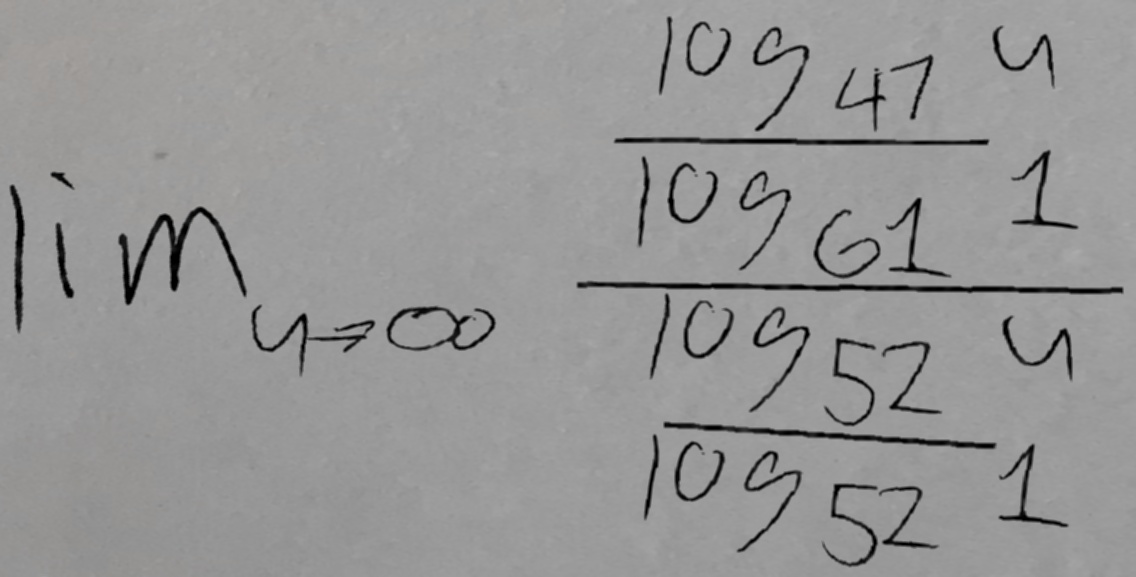 \lim_{y \to \infty} \frac{\frac{\log_{47} y}{\log_{61} 1}}{\frac{\log_{52} y}{\log_{52} 1}}